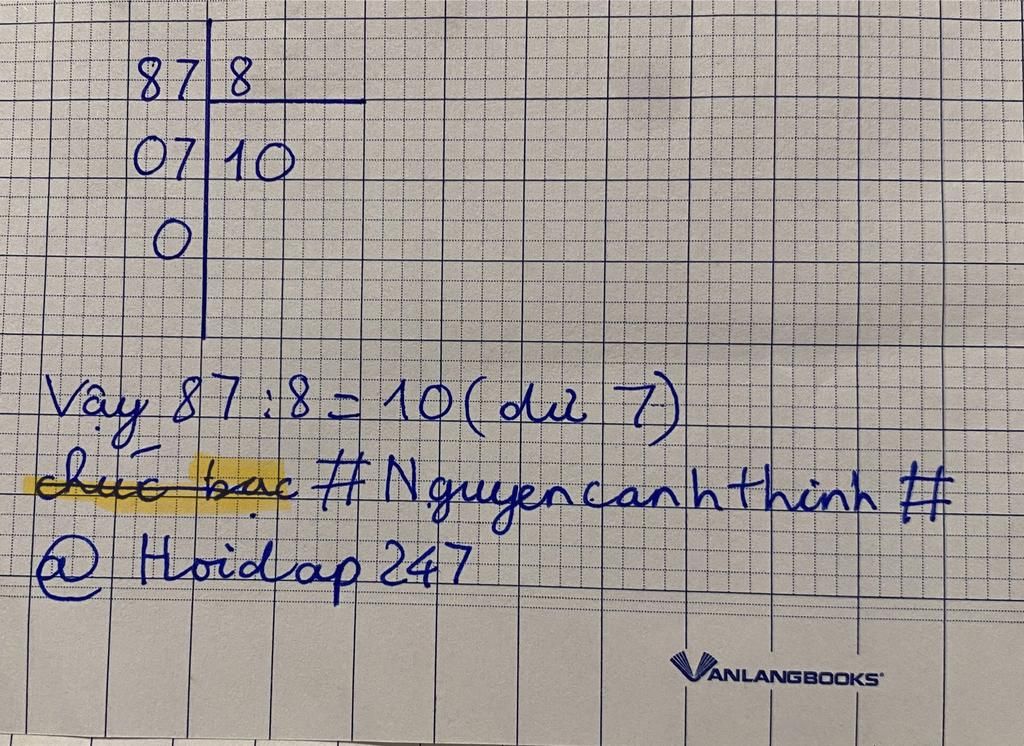 87 8
07 10
0
Vậy 87 : 8 = 10 ( dư 7)
chúc bạc # Nguyencanhthinh #
@ Hoidap 247
VANLANGBOOKS